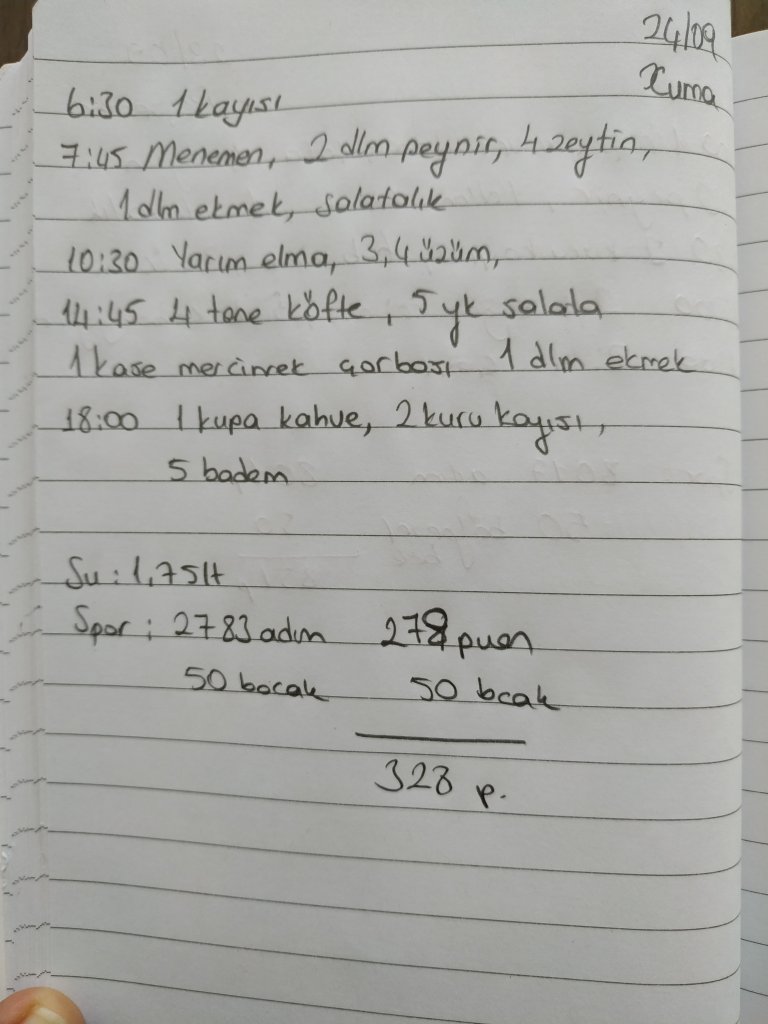 24/09
Cuma
6:30 1 kayısı
7:45 Menemen, 2 dlm peynir, 4 zeytin,
1 dlm ekmek, salatalık
10:30 Yarım elma, 3,4 üzüm,
14:45 4 tane köfte, 5 yk salata
1 kase mercimek çorbası 1 dlm ekmek
18:00 1 kupa kahve, 2 kuru kayısı,
5 badem
Su : 1,75 lt
Spor : 2783 adım 278 puan
50 bacak 50 bcak
328 p.